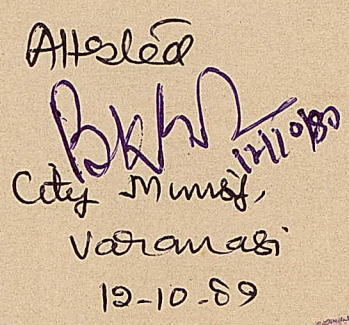 Attested
12/10/89
City Munsif,
Varanasi
12-10-89